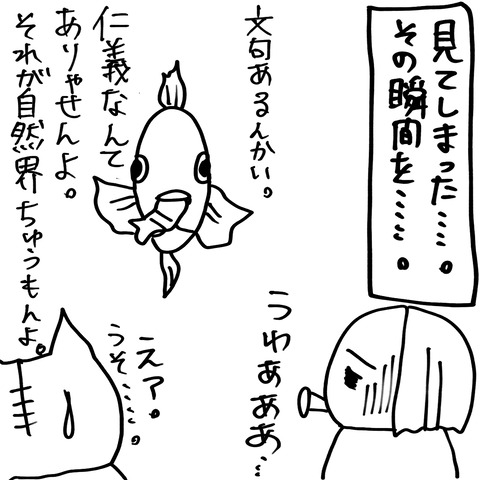 見てしまった‥‥。
その瞬間を‥‥‥。
文句あるんかい。
仁義なんて
ありゃせんよ。
それが自然界ちゅうもんよ。
うわぁぁぁ‥
えァ。
うそ‥‥‥。